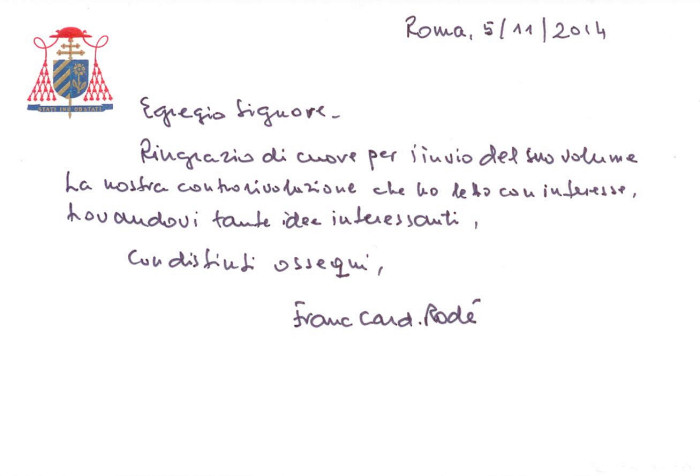 Roma, 5/11/2014
Egregio Signore.
Ringrazio di cuore per l'invio del suo volume
La nostra controrivoluzione che ho letto con interesse,
trovandovi tante idee interessanti,
Con distinti ossequi,
Franc Card. Rodé